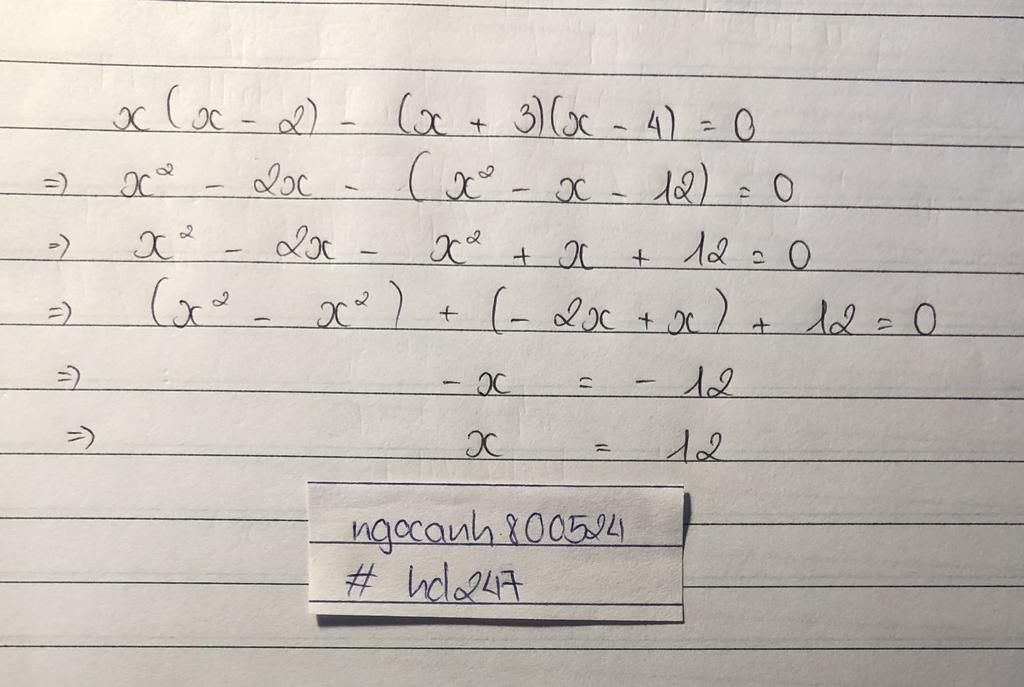 x(x - 2) - (x + 3)(x - 4) = 0
=> x² - 2x - (x² - x - 12) = 0
=> x² - 2x - x² + x + 12 = 0
=> (x² - x²) + (- 2x + x) + 12 = 0
=> - x = - 12
=> x = 12
ngocanh800524
# hd247